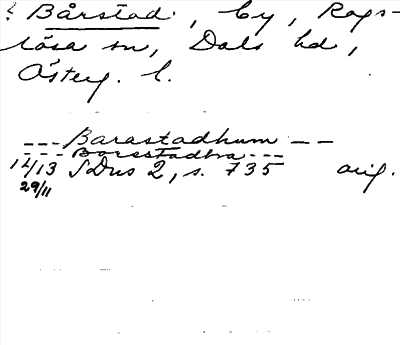 ? Bårstad, by, Rogs-
lösa sn, Dals hd,
Österg. l.
--- Barastadhum --
--- Borestadha ---
14/13 SDns 2, s. 735 orig.
29/11